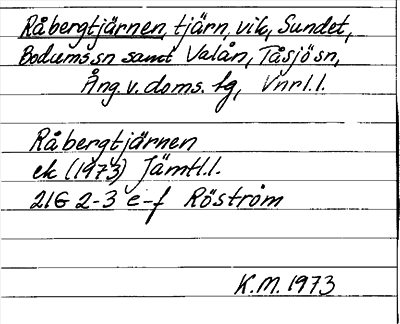 Råbergtjärnen, tjärn, vik, Sundet,
Bodums sn samt Valån, Tåsjö sn,
Ång. v. doms. fg, Vnrl. l.
Råbergtjärnen
ek (1973) Jämtl. l.
21G 2-3 e-f Röström
K.M. 1973